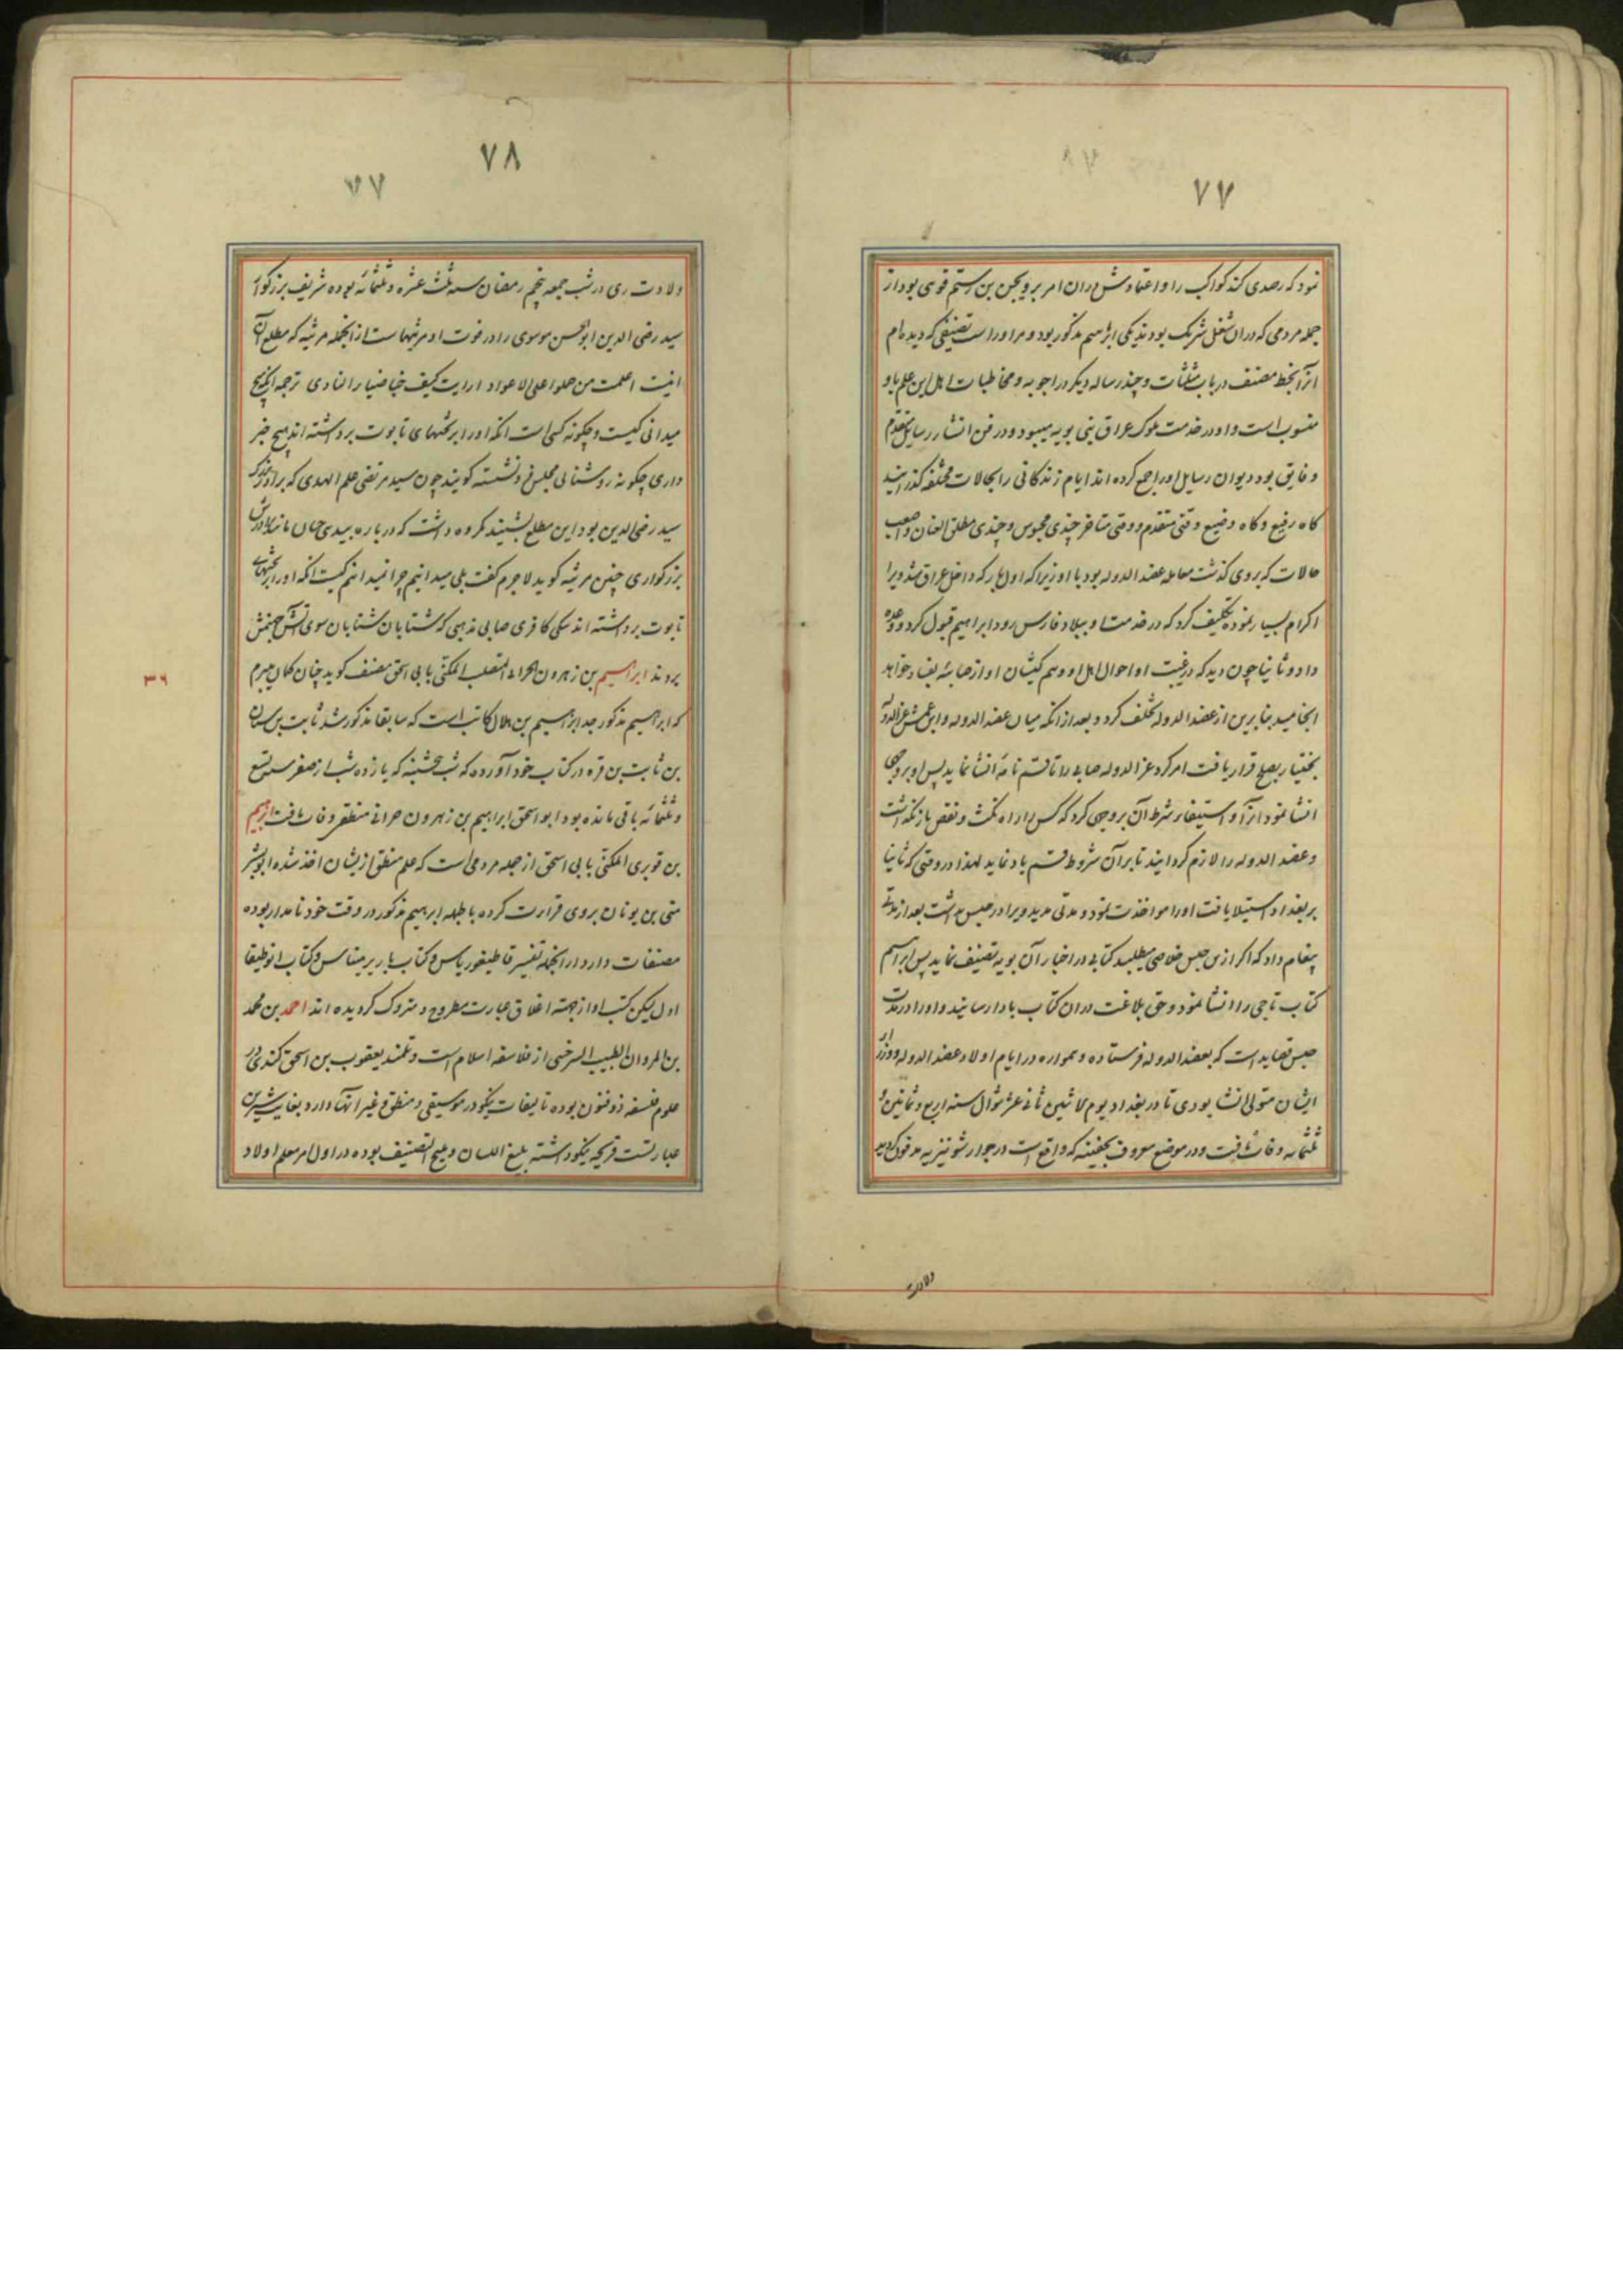 ٧٧
نمود که رصدی کند کواکب را و اعتمادش دران امر بر ویجن بن رستم قوی بود از
جمله مردمی که دران شغل شریک بودند یکی ابراهیم مذکور بود و مر اوراست تصنیفی که دیده‌ام
انرا بخط مصنف در باب مثلثات و چند رساله دیکر در اجوبه و مخاطبات اهل این علم باو
منسوب است و او در خدمت ملوک عراق بنی بویه میبود و در فن انشار رسایل متقدم
و فایق بود دیوان رسایل اورا جمع کرده اند ایام زندکانی را بحالات مختلفه کذرانید
کاه رفیع و کاه وضیع وقتی متقدم و وقتی متاخر چندی محبوس و چندی مطلق العنان و اصعب
حالات که بروی کذشت معامله عضد الدوله بود با او زیرا که اول بار که داخل عراق شد ویرا
اکرام بسیار نموده تکلیف کرد که در خدمت او ببلاد فارس رود ابراهیم قبول کرد و وعده
داد و ثانیا چون دید که در غیبت او احوال اهل او و هم کیشان او از صابئه بفساد خواهد
انجامید بنابرین از عضد الدوله تخلف کرد و بعد از انکه میان عضد الدوله و ابن عمش عز الدوله
بختیار بصلح قرار یافت امر کرد عز الدوله صابی را تا قسم نامه انشا نماید پس او بر وجهی
انشا نمود انرا و استیفاء شرط آن بروجهی کرد که کس را راه نکث و نقض باز نکذاشت
و عضد الدوله را لازم کردانید تا بر آن شروط قسم یاد نماید لهذا در وقتی که ثانیا
بر بغداد استیلا یافت اورا مواخذت نمود و مدتی مدید ویرا در حبس داشت بعد از مدتی
پیغام داد که اکر از من حبس خلاصی میطلبد کتابی در اخبار آن بویه تصنیف نماید پس ابراهیم
کتاب تاجی را انشا نمود و حق بلاغت دران کتاب بادا رسانید و اورا در مدت
حبس قصاید است که بعضد الدوله فرستاده و همواره در ایام اولاد عضد الدوله و وزرای
ایشان متولی انشا بودی تا در بغداد یوم لاثنین ثانی عشر شوال سنه اربع و ثمانین و
ثلثمایه وفات یافت و در موضع معروف بجنینه که واقع است در جوار شونیزیه مدفون کردید
ولادت
٧٨
ولادت وی در شب جمعه پنجم رمضان سنه ثلث عشره و ثلثمائه بوده شریف بزرکوار
سید رضی الدین ابو الحسن موسوی را در فوت او مرثیهاست از انجمله مرثیه که مطلع آن
اینست اعلمت من حملوا علی الاعواد ارایت کیف خبا ضیا را لنادی ترجمه انکه هیچ
میدانی کیست و چکونه کسی است انکه اورا بر تختهای تابوت برداشته اند هیچ خبر
داری چکونه روشنائی مجلس فرو نشسته کویند چون سید مرتضی علم الهدی که برادر بزرک
سید رضی الدین بود این مطلع بشنید مکروه داشت که درباره بیدی چنان مانند برادرش
بزرکواری چنین مرثیه کوید لاجرم کفت بلی میدانیم چرا نمیدانیم کیست انکه اورا بر تختهای
تابوت برداشته اند سکی کافری صابی مذهبی که شتابان شتابان سوی آتش جهنمش
بردند ابراهیم بن زهرون الحرانی المتطبب المکنی بابی اسحق مصنف کوید چنان کمان میبرم
که ابراهیم مذکور جد ابراهیم بن هلال کاتب است که سابقا مذکور شد ثابت بن سنان
بن ثابت بن قره در کتاب خود آورده که شب پنجشنبه که یازده شب از صفر سنه تسع
و ثلثمائه باقی مانده بود ابو اسحق ابراهیم بن زهرون حرانی متطبب وفات یافت ابراهیم
بن قویری المکنی بابی اسحق از جمله مردمی است که علم منطق ازیشان اخذ شده ابو بشر
متی بن یونان بروی قراءت کرده با طبله ابرهیم مذکور در وقت خود نامدار بوده
مصنفات دارد از انجمله تفسیر قاطیغوریاس و کتاب باریرمیناس و کتاب انولیقا
اول لیکن کتب او از جهة اغلاق عبارت مطروح و متروک کردیده اند احمد بن محمد
بن المروان الطبیب السرخسی از فلاسفه اسلام است و تلمیذ یعقوب بن اسحق کندی در
علوم فلسفه ذو فنون بوده تالیفات نیکو در موسیقی و منطق و غیر آنها دارد بغایت شیرین
عبارتست قریحه نیکو داشته بلیغ اللسان و ملیح التصنیف بوده در اول امر معلم اولاد
٣٦